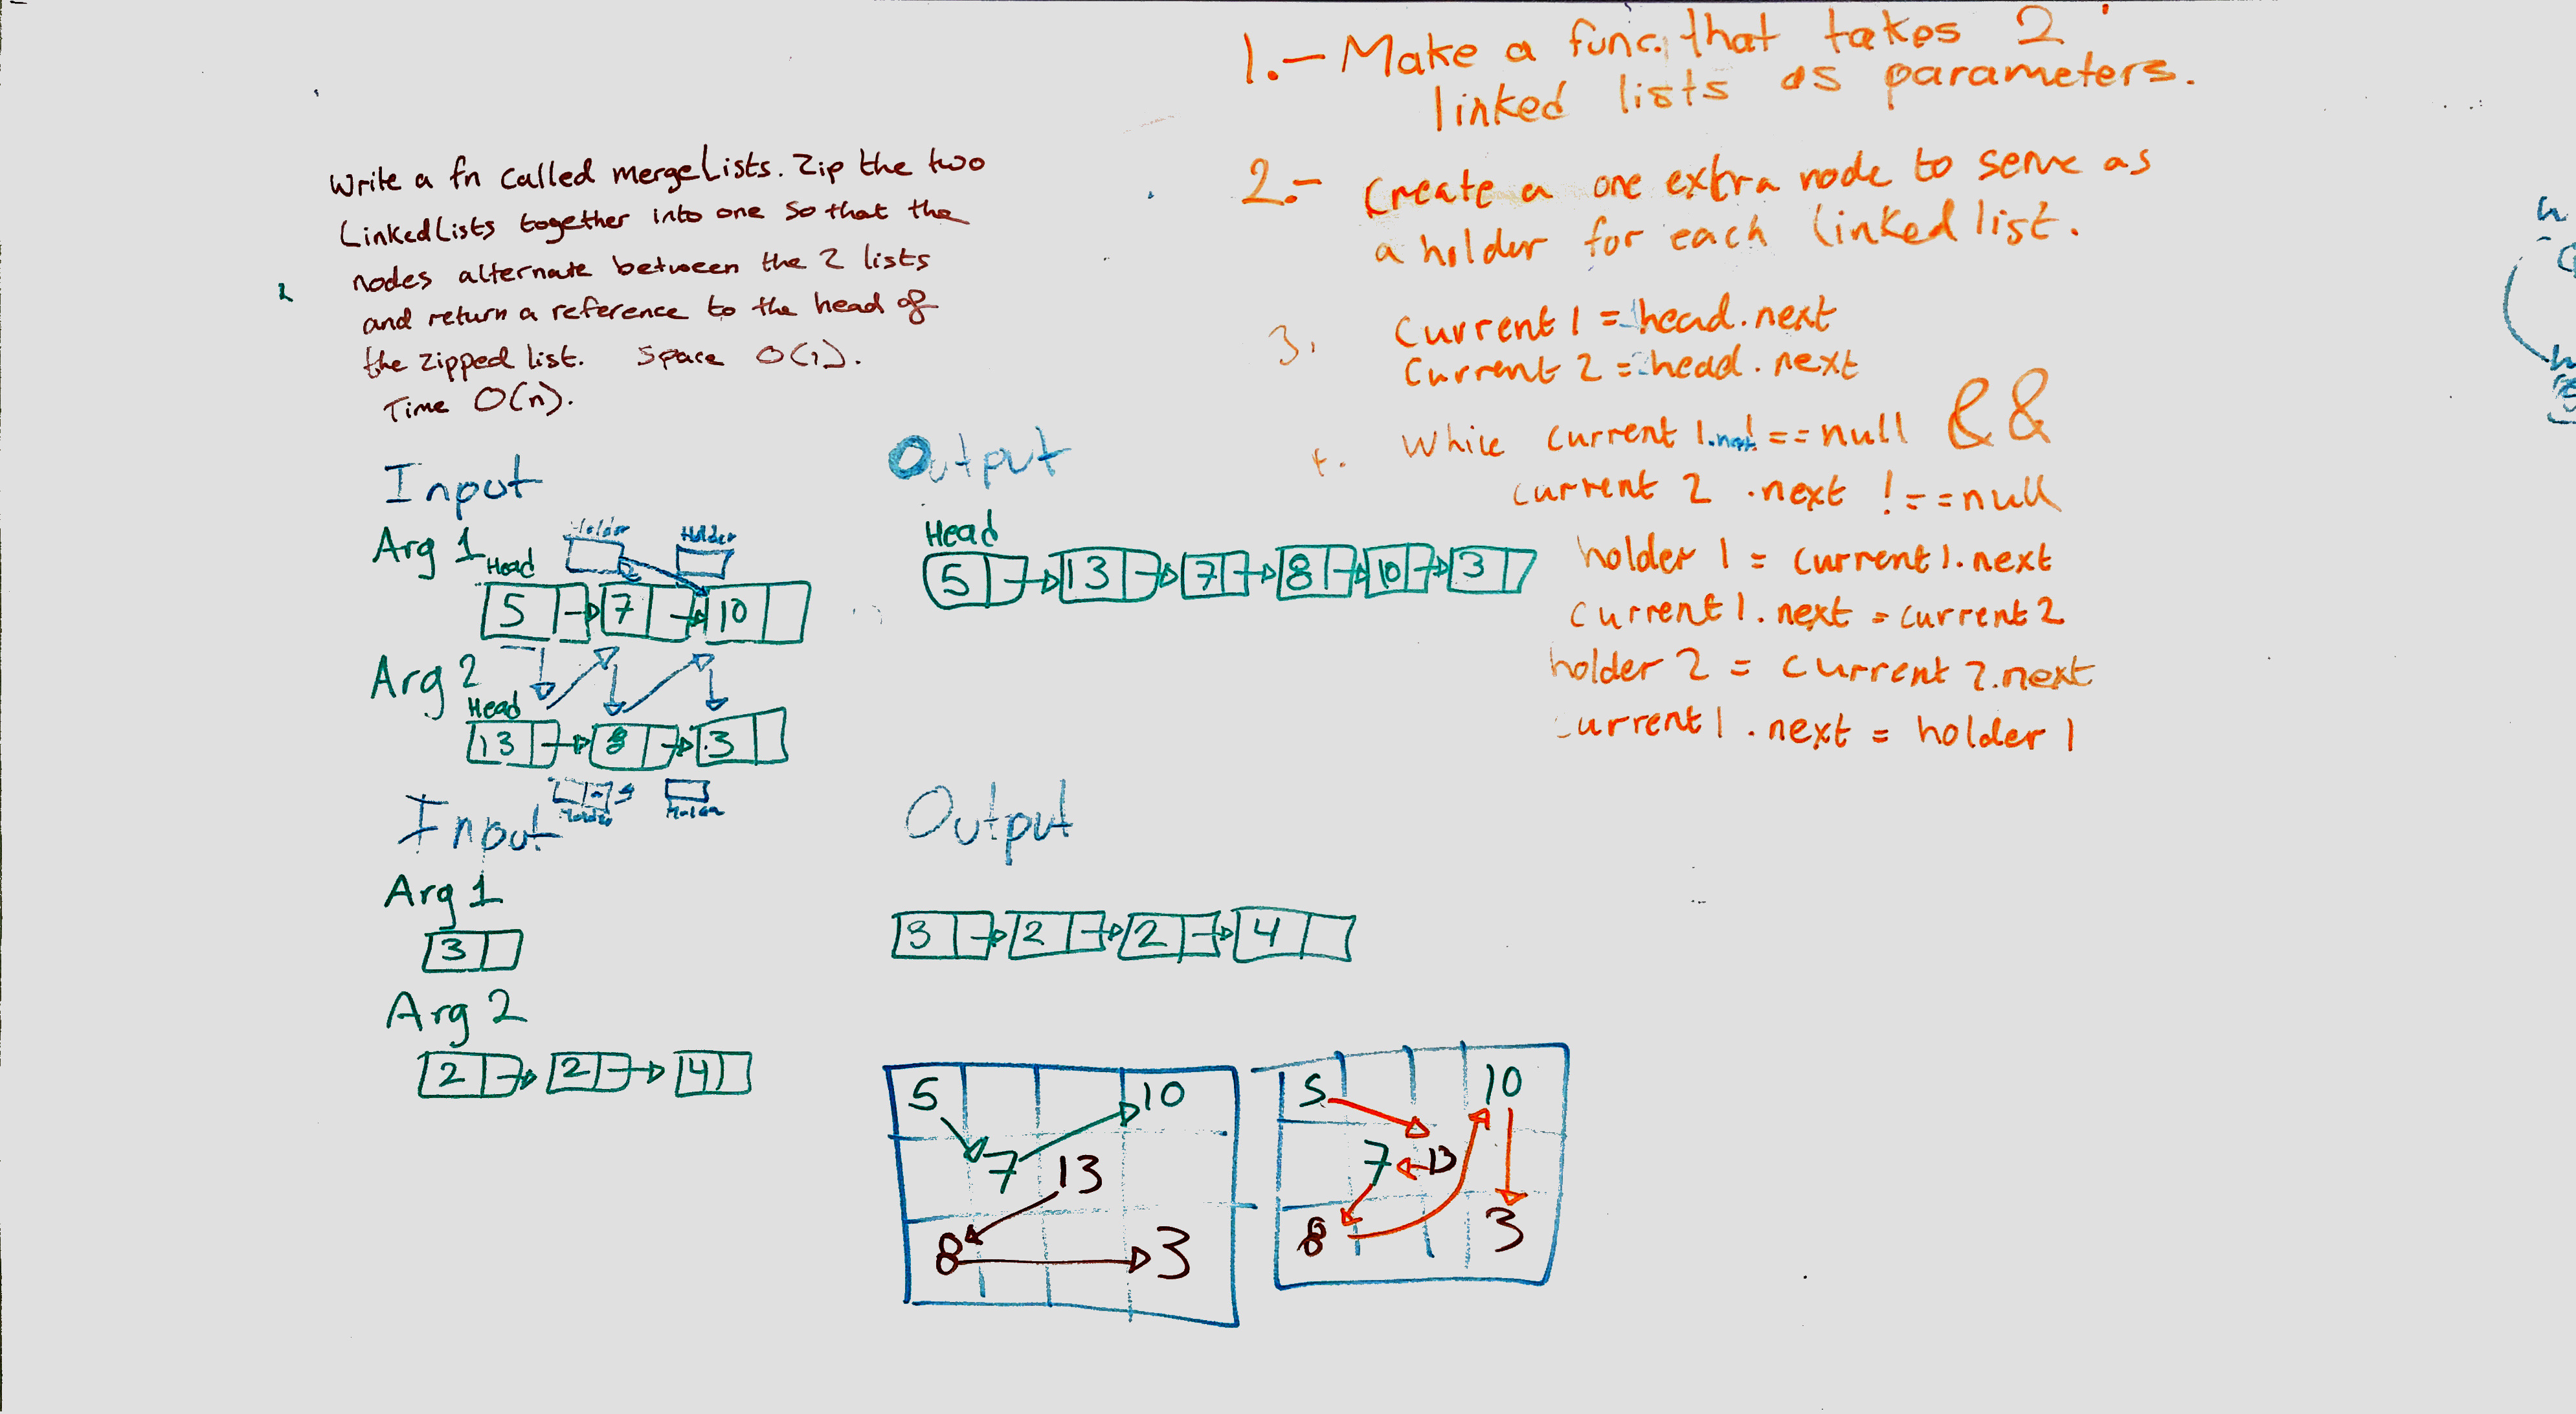 Write a fn called mergeLists. Zip the two
LinkedLists together into one so that the
nodes alternate between the 2 lists
and return a reference to the head of
the zipped list. Space O(1).
Time O(n).
Input
Arg 1
Head
Holder
Holder
5 7 10
Arg 2
Head
13 8 3
Holder
Holder
Output
Head
5 13 7 8 10 3
Input
Arg 1
3
Arg 2
2 2 4
Output
3 2 2 4
5 10
7 13
8 3
5 10
7 13
8 3
1.- Make a func. that takes 2
linked lists as parameters.
2.- Create a one extra node to serve as
a holder for each linked list.
3. Current 1 = 1head.next
Current 2 = 2head.next
While current 1.next !== null &&
current 2 .next !== null
holder 1 = current 1.next
current 1.next = current 2
holder 2 = current 2.next
current 1 .next = holder 1